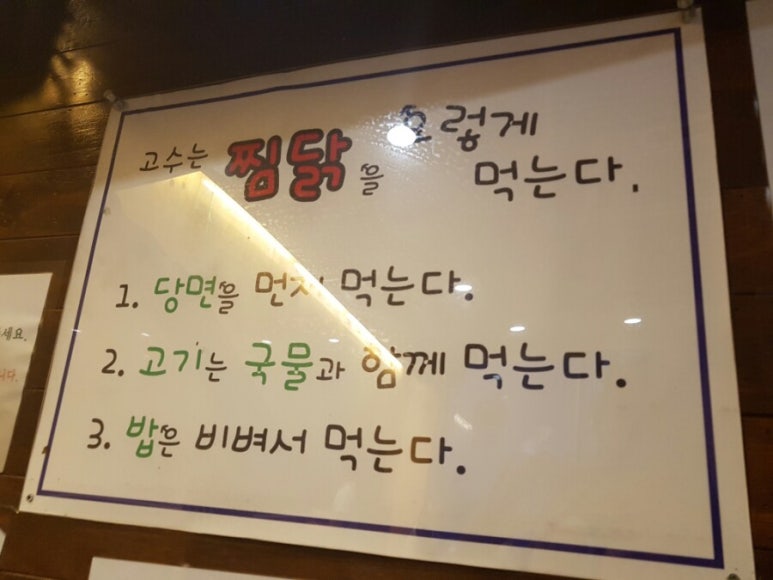 고수는 찜닭을 요렇게
먹는다.
1. 당면을 먼저 먹는다.
2. 고기는 국물과 함께 먹는다.
3. 밥은 비벼서 먹는다.
세요.
니다.